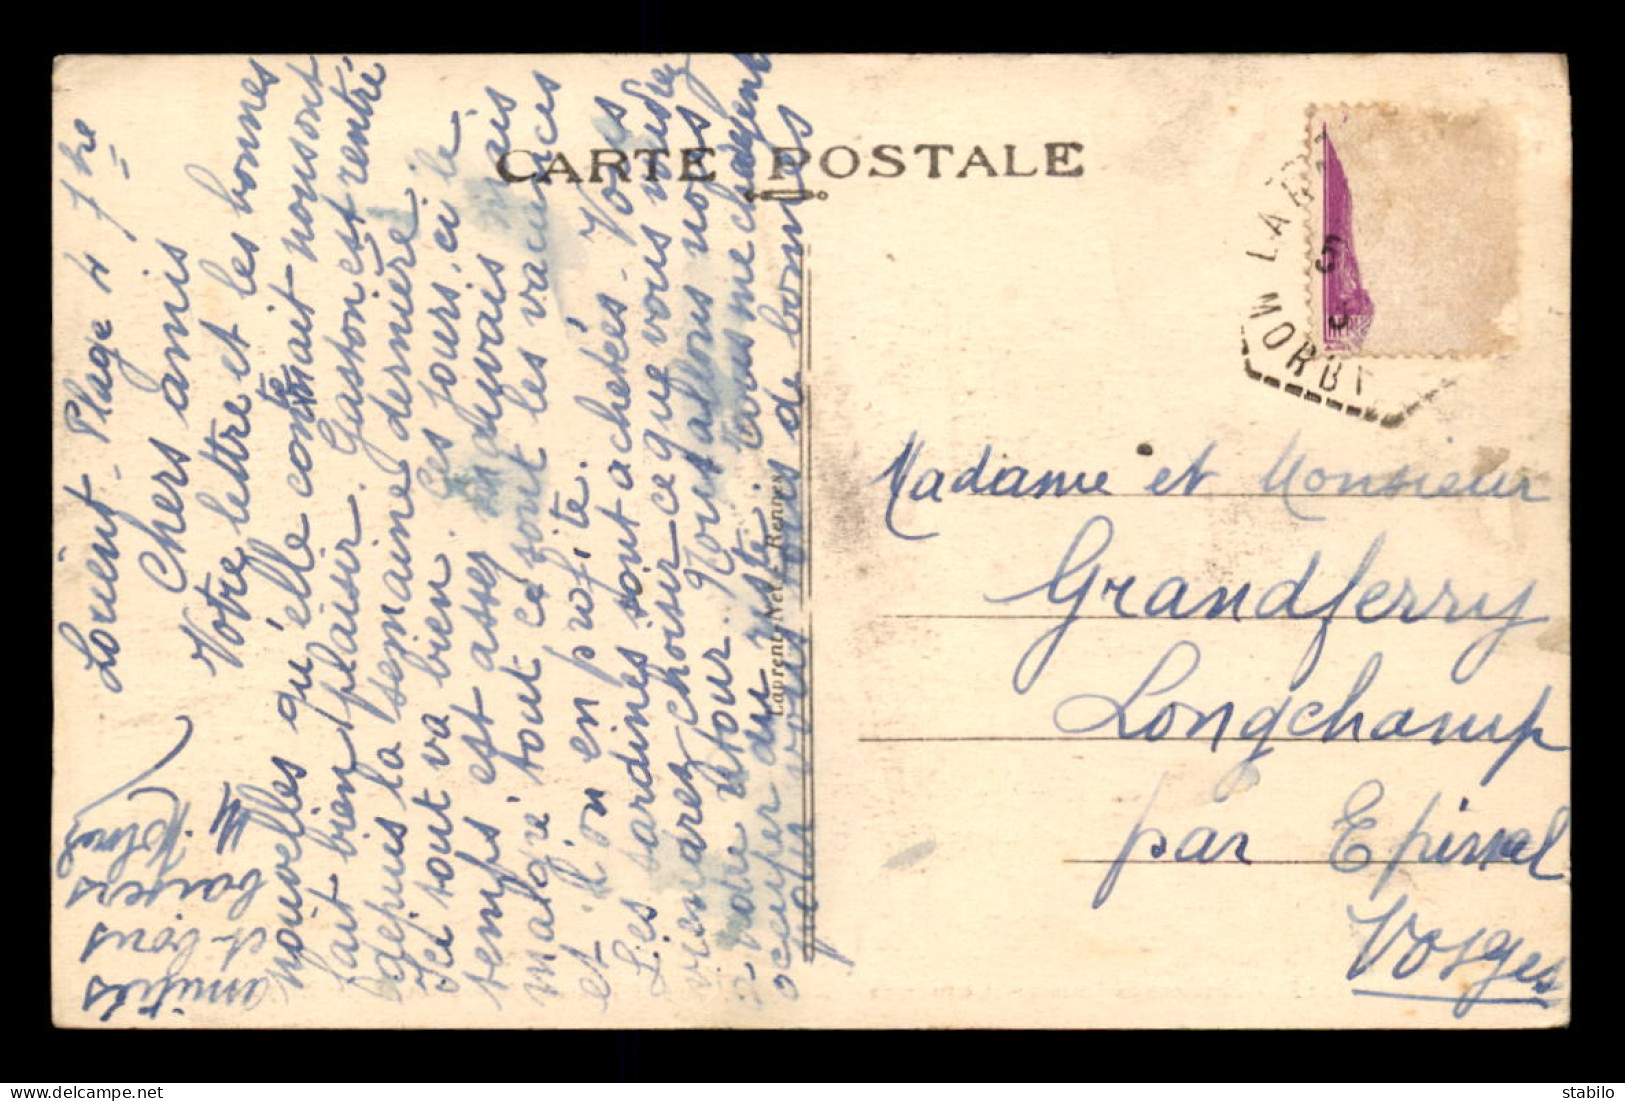 CARTE POSTALE
Lorient-Plage 4 7bre
Chers amis
Votre lettre et les bonnes
nouvelles qu'elle contenait nous ont
fait bien plaisir. Gaston est rentré
depuis la semaine dernière.
Ici tout va bien. Ces jours-ci le
temps est assez mauvais mais
malgré tout ce sont les vacances
et l'on en profite.
Les sardines sont achetées. Vous
viendrez choisir ce que vous voudrez
à notre retour. Nous allons nous
occuper du reste. Tous me chargent
pour vous tous de bonnes
amitiés
et bons
baisers
Laurent-Nel - Rennes
MORBN
5
Madame et Monsieur
Grandferry
Longchamp
par Epinal
Vosges
stabilo